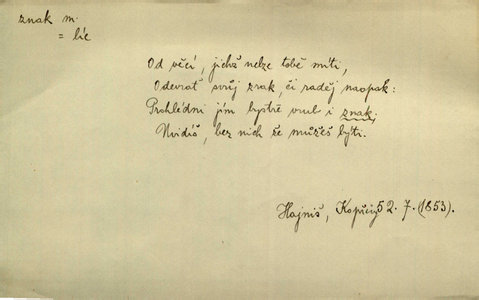 znak m.
= líc
Od věcí, jichž nelze tobě míti,
Odevrať svůj zrak, či raděj naopak:
Prohlédni jím bystře vrub i znak,
Uvidíš, bez nich že můžeš býti.
Hajniš, Kopřivy 52. 7. (1853).